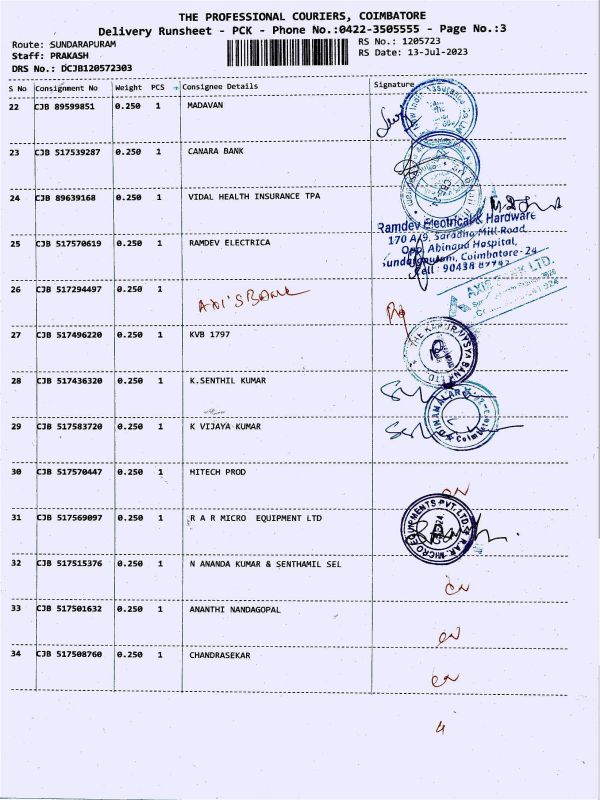 THE PROFESSIONAL COURIERS, COIMBATORE
Delivery Runsheet - PCK - Phone No.:0422-3505555 - Page No.:3
Route: SUNDARAPURAM
Staff: PRAKASH
DRS No.: DCJB120572303
RS No.: 1205723
RS Date: 13-Jul-2023
S No Consignment No Weight PCS Consignee Details Signature
22 CJB 89599851 0.250 1 MADAVAN
23 CJB 517539287 0.250 1 CANARA BANK
24 CJB 89639168 0.250 1 VIDAL HEALTH INSURANCE TPA
Ramdev Electrical & Hardware
170 A/9, Saradha Mill Road,
Opp. Abinand Hospital,
Sundarapuram, Coimbatore-24
Cell : 90438
25 CJB 517570619 0.250 1 RAMDEV ELECTRICA
AXIS BANK LTD.
26 CJB 517294497 0.250 1 AXI'S BANK
27 CJB 517496220 0.250 1 KVB 1797
THE KARUR VYSYA BANK LTD.
28 CJB 517436320 0.250 1 K.SENTHIL KUMAR
DINAMALAR
Coimbatore
29 CJB 517583720 0.250 1 K VIJAYA KUMAR
30 CJB 517570447 0.250 1 HITECH PROD
31 CJB 517569097 0.250 1 R A R MICRO EQUIPMENT LTD
R.A.R. MICRO EQUIPMENTS PVT.LTD.
32 CJB 517515376 0.250 1 N ANANDA KUMAR & SENTHAMIL SEL
33 CJB 517501632 0.250 1 ANANTHI NANDAGOPAL
34 CJB 517508760 0.250 1 CHANDRASEKAR